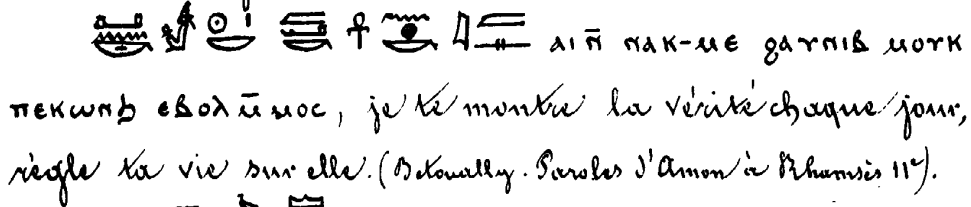 ⲁⲓⲛ̄ ⲛⲁⲕ-ⲙⲉ ϩⲁⲩⲛⲓⲃ ⲙⲟⲩⲕ
ⲡⲉⲕⲱⲛϧ ⲉⲃⲟⲗ ⲙ̄ⲙⲟⲥ, je te montre la vérité chaque jour,
règle ta vie sur elle. (Bétoually. Paroles d'Amon à Rhamsès IIe).